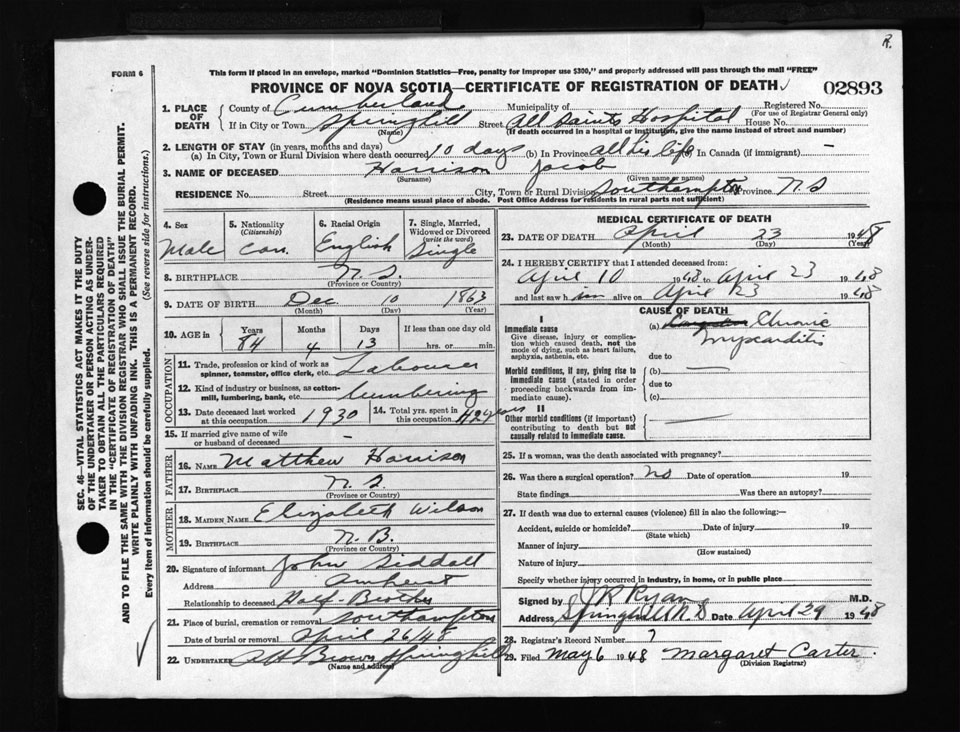 R.
FORM 6
This form if placed in an envelope, marked "Dominion Statistics—Free, penalty for improper use $300," and properly addressed will pass through the mail "FREE"
PROVINCE OF NOVA SCOTIA—CERTIFICATE OF REGISTRATION OF DEATH 02893
1. PLACE OF DEATH
County of Cumberland Municipality of Registered No.
(For use of Registrar General only)
If in City or Town Springhill Street All Saints Hospital House No.
(Name) (If death occurred in a hospital or institution, give the name instead of street and number)
2. LENGTH OF STAY (in years, months and days)
(a) In City, Town or Rural Division where death occurred 10 days (b) In Province all his life In Canada (if immigrant) —
3. NAME OF DECEASED Harrison Jacob
(Surname) (Given name or names)
RESIDENCE No. Street City, Town or Rural Division Southampton Province N.S
(Residence means usual place of abode. Post Office Address for residents in rural parts not sufficient)
4. Sex
Male
5. Nationality
(Citizenship)
Can.
6. Racial Origin
English
7. Single, Married, Widowed or Divorced
(write the word)
Single
8. BIRTHPLACE N.S.
(Province or Country)
9. DATE OF BIRTH Dec 10 1863
(Month) (Day) (Year)
10. AGE in Years Months Days If less than one day old
84 4 13 hrs. or min.
OCCUPATION
11. Trade, profession or kind of work as
spinner, teamster, office clerk, etc. Labourer
12. Kind of industry or business, as cotton-
mill, lumbering, bank, etc. lumbering
13. Date deceased last worked
at this occupation 1930
14. Total yrs. spent in
this occupation 42 years
15. If married give name of wife
or husband of deceased —
FATHER
16. NAME Matthew Harrison
17. BIRTHPLACE N.S
(Province or Country)
MOTHER
18. MAIDEN NAME Elizabeth Wilson
19. BIRTHPLACE N.B.
(Province or Country)
20. Signature of informant John Siddall
Address Amherst
Relationship to deceased Half-Brother
21. Place of burial, cremation or removal Southampton
Date of burial or removal April 26/48
22. UNDERTAKER Brown Springhill
(Name and address)
MEDICAL CERTIFICATE OF DEATH
23. DATE OF DEATH April 23 1948
(Month) (Day) (Year)
24. I HEREBY CERTIFY that I attended deceased from:
April 10 1948 to April 23 1948
and last saw him alive on April 23 1948
CAUSE OF DEATH
I
Immediate cause
Give disease, injury or complica-
tion which caused death, not the
mode of dying, such as heart failure,
asphyxia, asthenia, etc.
(a) Chronic
Myocarditis
due to
Morbid conditions, if any, giving rise to
immediate cause (stated in order
proceeding backwards from im-
mediate cause).
(b) —
due to
(c)
II
Other morbid conditions (if important)
contributing to death but not
causally related to immediate cause.
25. If a woman, was the death associated with pregnancy?
26. Was there a surgical operation? No Date of operation 19
State findings Was there an autopsy?
27. If death was due to external causes (violence) fill in also the following:—
Accident, suicide or homicide? Date of injury 19
(State which)
Manner of injury
(How sustained)
Nature of injury
Specify whether injury occurred in industry, in home, or in public place
Signed by J R Ryan M.D.
Address Springhill N.S Date April 29 1948
28. Registrar's Record Number 7
29. Filed May 6 1948 Margaret Carter.
(Division Registrar)
SEC. 46—VITAL STATISTICS ACT MAKES IT THE DUTY
OF THE UNDERTAKER OR PERSON ACTING AS UNDER-
TAKER TO OBTAIN ALL THE PARTICULARS REQUIRED
IN THE "CERTIFICATE OF REGISTRATION OF DEATH"
AND TO FILE THE SAME WITH THE DIVISION REGISTRAR WHO SHALL ISSUE THE BURIAL PERMIT.
WRITE PLAINLY WITH UNFADING INK. THIS IS A PERMANENT RECORD.
Every item of information should be carefully supplied. (See reverse side for instructions.)